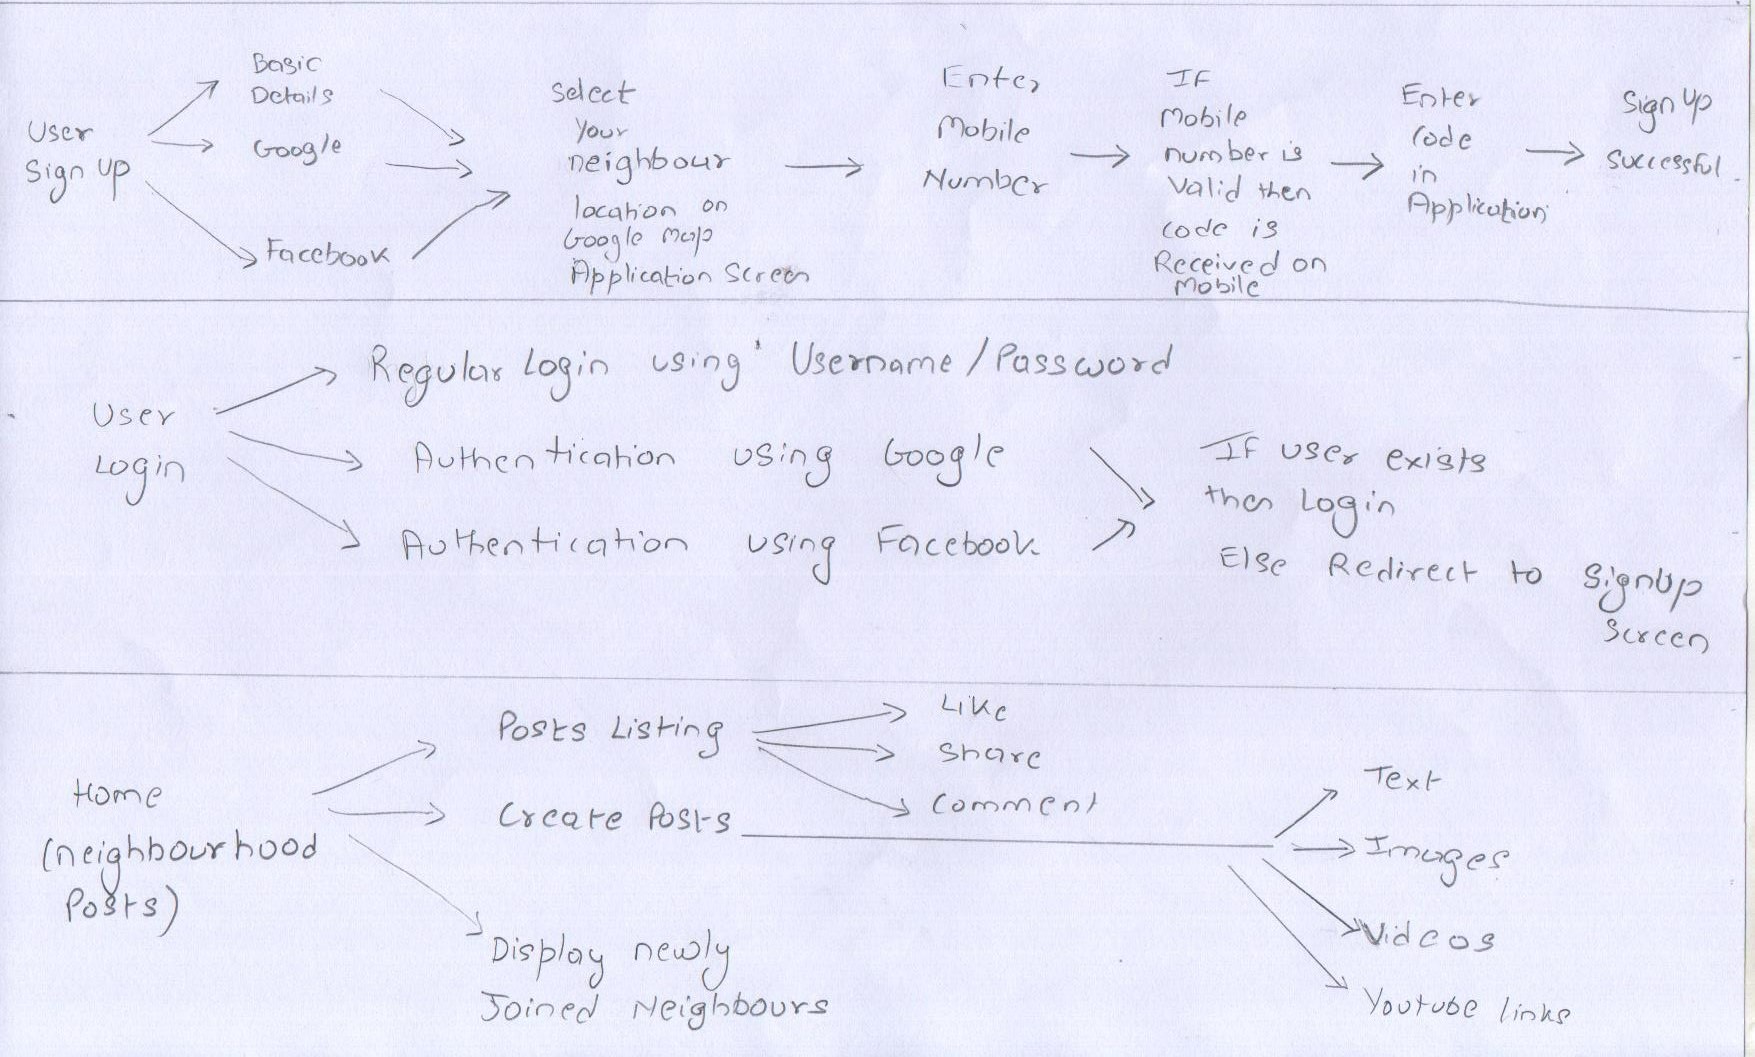 User
Sign Up
Basic
Details
Google
Facebook
Select
Your
neighbour
location on
Google Map
Application Screen
Enter
Mobile
Number
IF
Mobile
number is
Valid then
code is
Received on
Mobile
Enter
Code
in
Application
Sign Up
Successful
User
Login
Regular Login using Username/Password
Authentication using Google
Authentication using Facebook
If user exists
then Login
Else Redirect to SignUp
Screen
Home
(neighbourhood
Posts)
Posts Listing
Like
Share
Comment
Create Posts
Text
Images
Videos
Youtube links
Display newly
Joined Neighbours